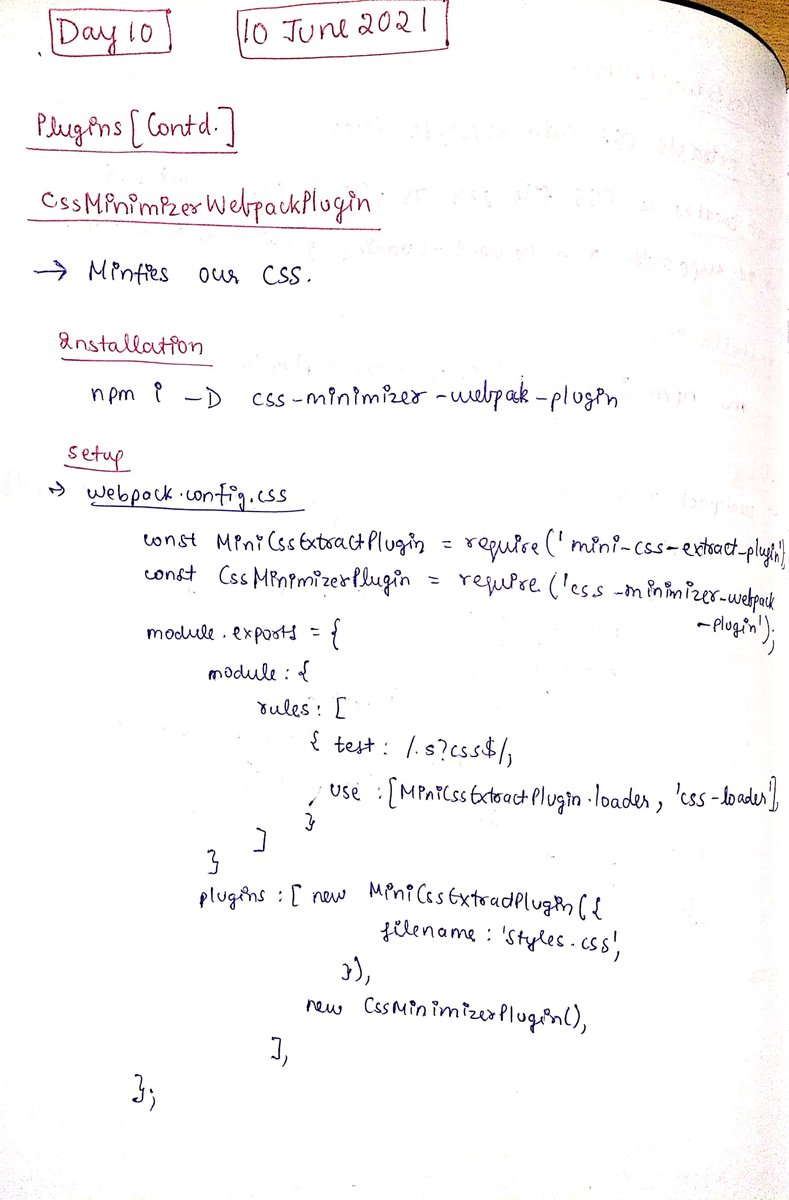 Day 10
10 June 2021
Plugins [Contd.]
CssMinimizerWebpackPlugin
→ Minfies our CSS.
Installation
npm i -D css-minimizer-webpak-plugin
Setup
→ webpack.config.css
const MiniCssExtractPlugin = require('mini-css-extract-plugin')
const CssMinimizerPlugin = require('css-minimizer-webpack
-plugin');
module.exports = {
module: {
rules: [
{ test: /.s?css$/,
use: [MiniCssExtractPlugin.loader, 'css-loader'],
}
]
}
plugins: [ new MiniCssExtractPlugin({
filename: 'styles.css',
}),
new CssMinimizerPlugin(),
],
};